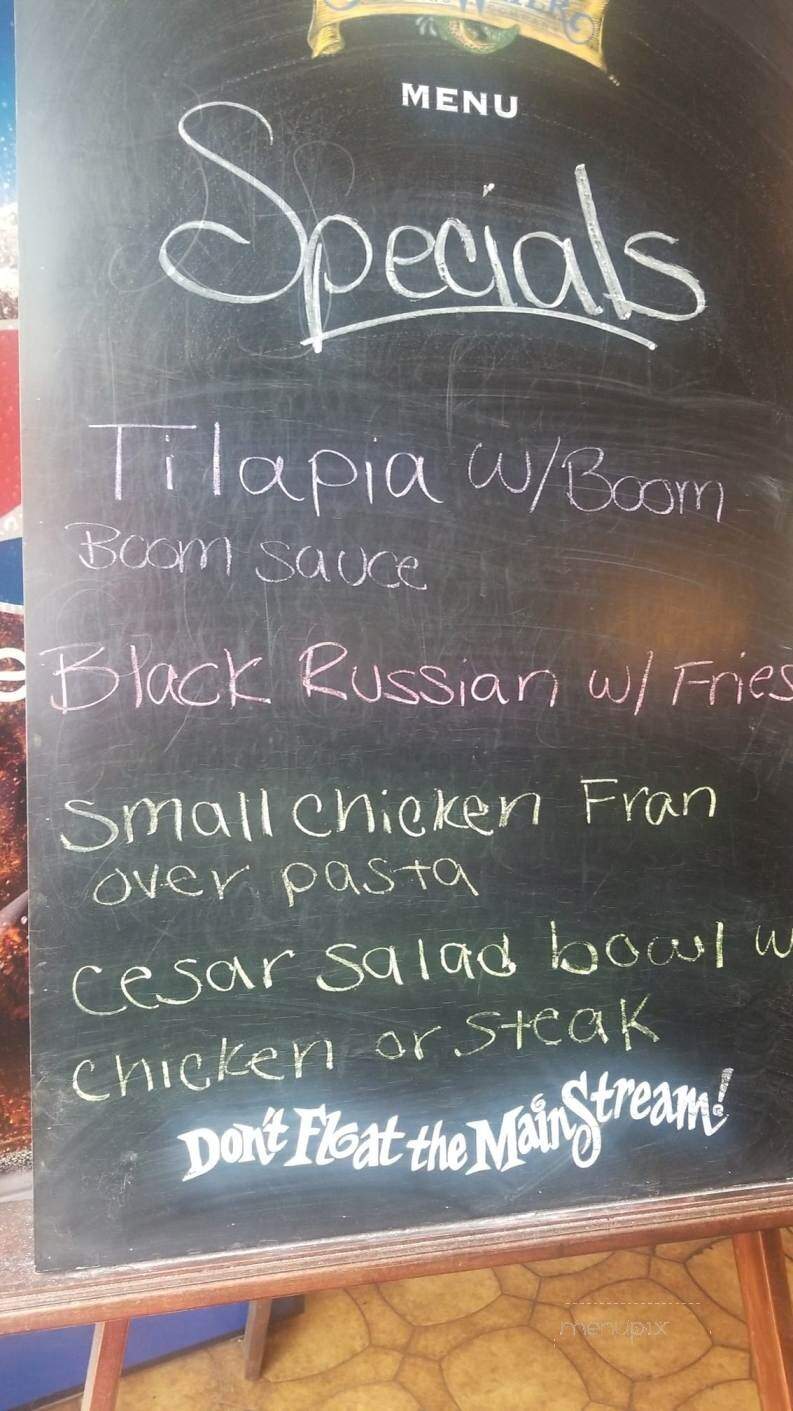 MENU
Specials
Tilapia w/Boom
Boom sauce
Black Russian w/ Fries
Small chicken Fran
over pasta
cesar salad bowl w
chicken or steak
Don't Float the MainStream!
menupix